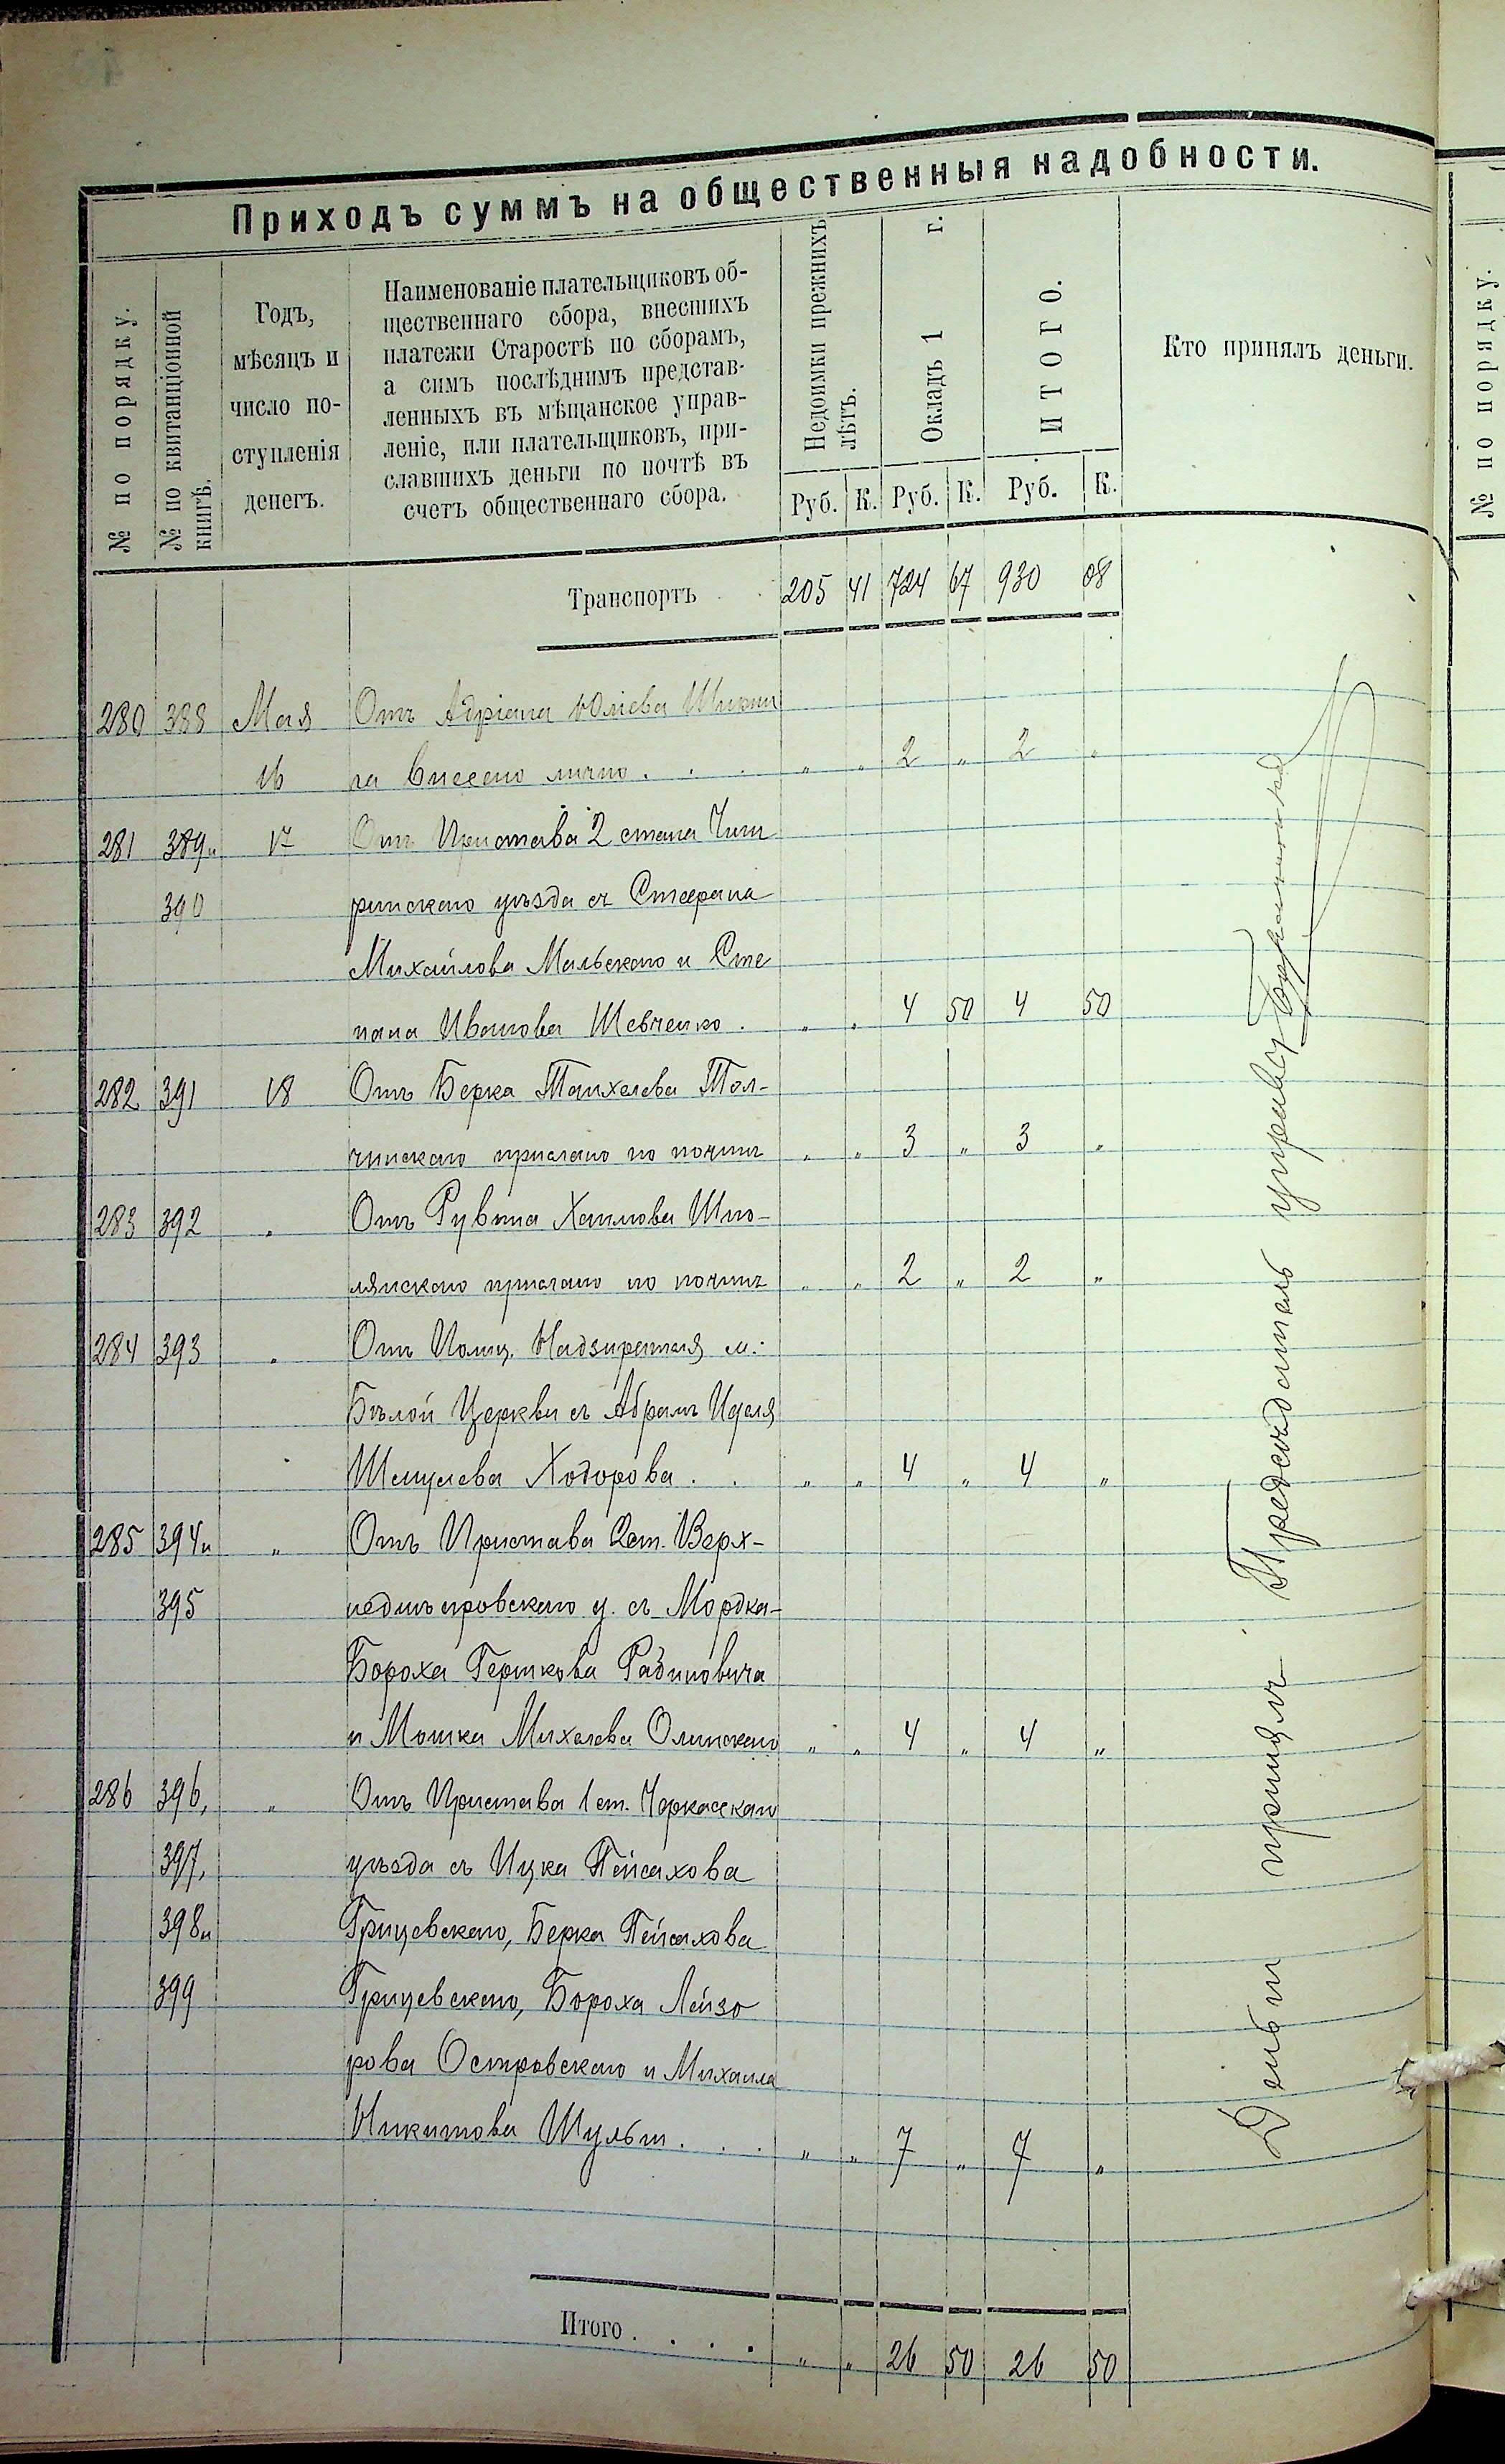 Приходъ суммъ на общественныя надобности.
№ по порядку.
№ по квитанціонной книгѣ.
Годъ,
мѣсяцъ и
число по-
ступленія
денегъ.
Наименованіе плательщиковъ об-
щественнаго сбора, внесшихъ
платежи Старостѣ по сборамъ,
а симъ послѣднимъ представ-
ленныхъ въ мѣщанское управ-
леніе, или плательщиковъ, при-
славшихъ деньги по почтѣ въ
счетъ общественнаго сбора.
Недоимки прежнихъ
лѣтъ.
Окладъ 1 г.
ИТОГО.
Кто принялъ деньги.
Руб. К. Руб. К. Руб. К.
Транспортъ 205 41 724 67 930 08
280 388 Мая Отъ Адріана Юліева
16 на внесено лично . . . „ „ 2 „ 2 „
281 389 и 17 Отъ Пристава 2 стана Чиги
390 ринскаго уѣзда съ Стефана
Михайлова Мальскаго и Сте
пана Иванова Шевченко . „ „ 4 50 4 50
282 391 18 Отъ Берка Тол-
чинскаго прислано по почтѣ „ „ 3 „ 3 „
283 392 „ Отъ Рувина Хаимова Шпо-
лянскаго прислано по почтѣ „ „ 2 „ 2 „
284 393 „ Отъ Полиц. Надзирателя м.
Бѣлой Церкви съ Абрамъ Иделя
Шмулева Ходорова . . „ „ 4 „ 4 „
285 394 и „ Отъ Пристава 2 ст. Верх-
395 неднѣпровскаго у. съ Мордка-
Бороха Гершкова Рабиновича
и Мошка Михелева Олинскаго „ „ 4 „ 4 „
286 396, „ Отъ Пристава 1 ст. Черкасскаго
397, уѣзда съ Ицка Пейсахова
398 и Грицевскаго, Берка Пейсахова
399 Грицевскаго, Бороха Лейзо
рова Островскаго и Михаила
Никитова Шульги . . . „ „ 7 „ 7 „
Итого . . . . „ „ 26 50 26 50
Деньги принялъ Предсѣдатель управы
№ по порядку.